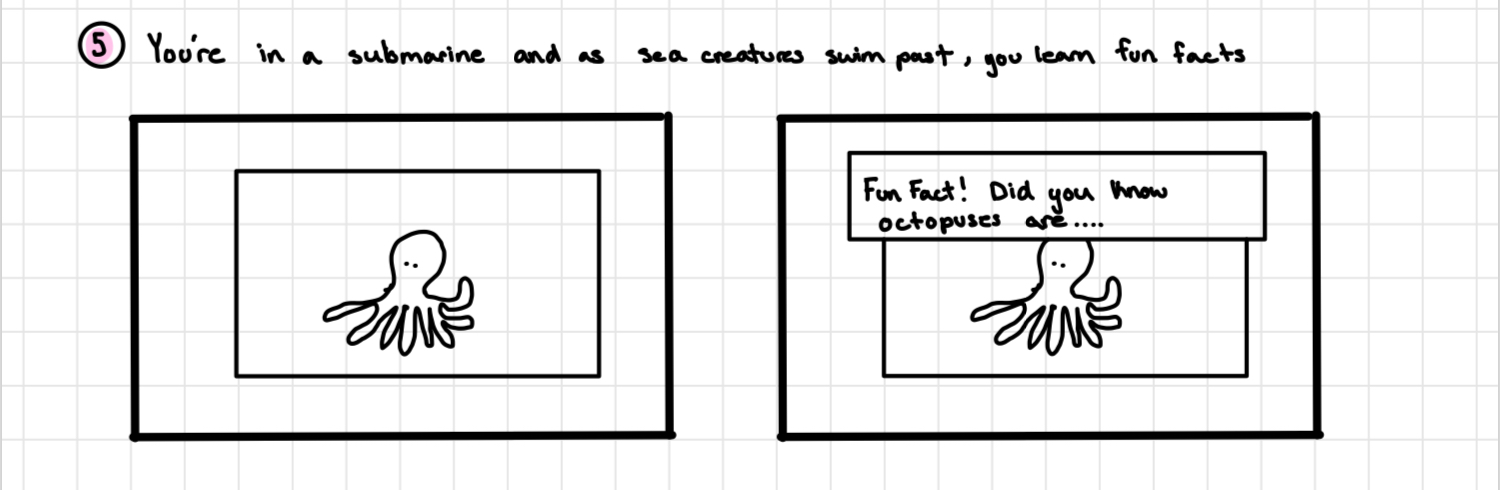 5 You're in a submarine and as sea creatures swim past, you learn fun facts
Fun Fact! Did you know
octopuses are....